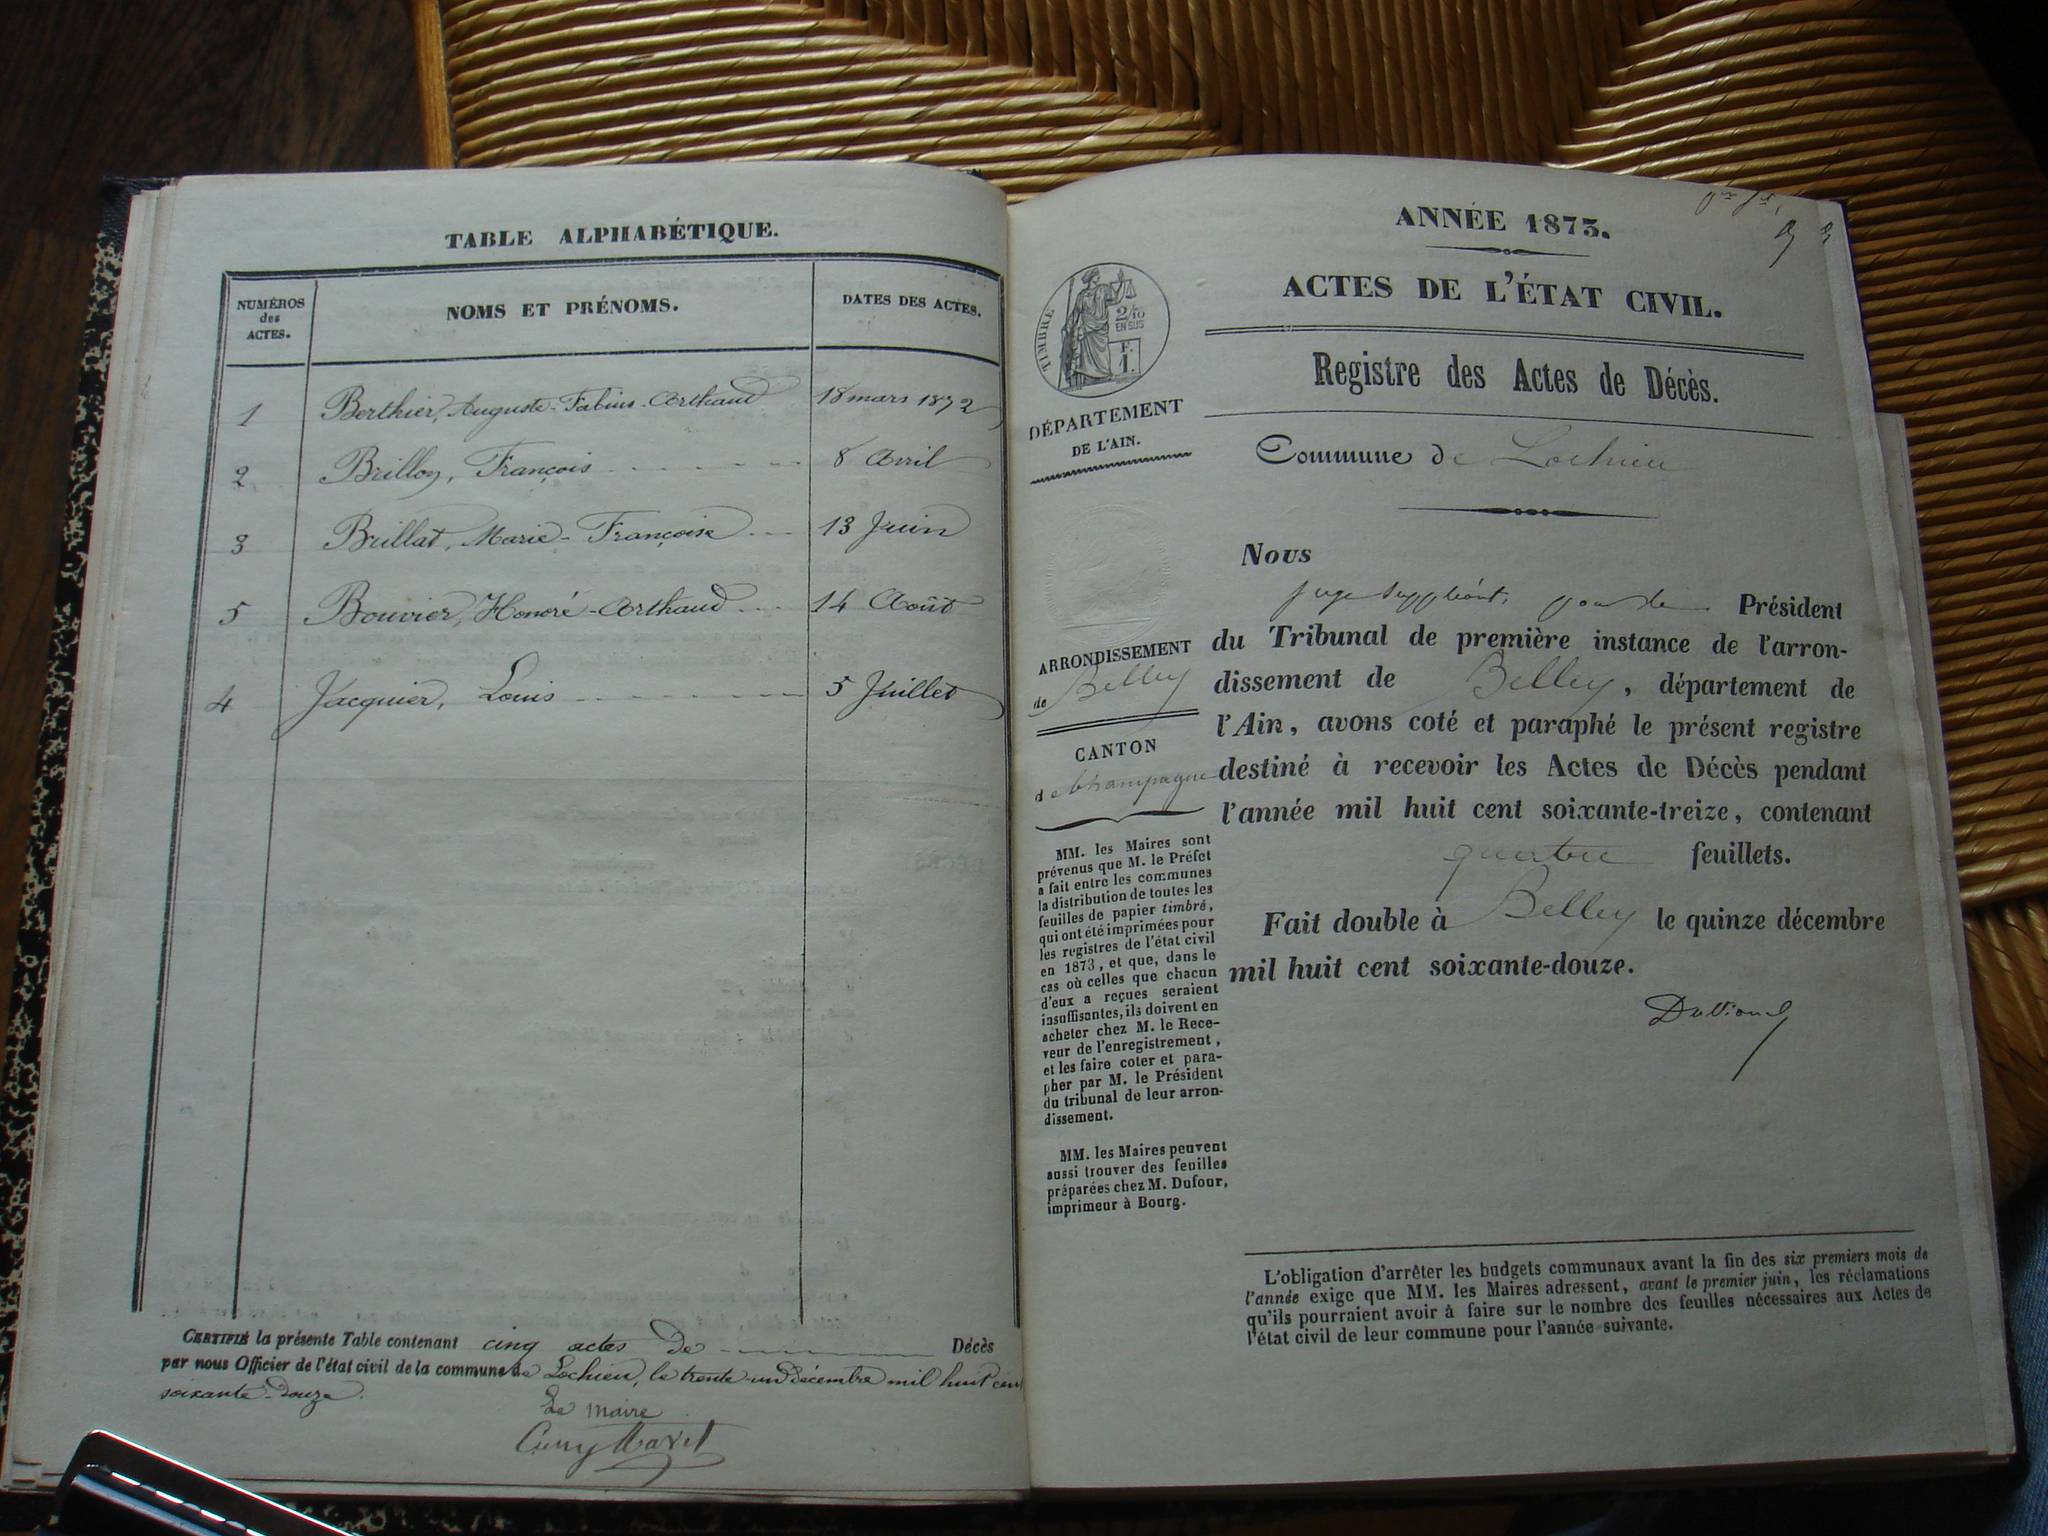 TABLE ALPHABÉTIQUE.
NUMÉROS des ACTES. NOMS ET PRÉNOMS. DATES DES ACTES.
1 Berthier, Auguste-Fabius-Arthaud 18 mars 1872
2 Brillon, François 8 Avril
3 Brillat, Marie-Françoise 13 Juin
5 Bouvier, Honoré-Arthaud 14 Août
4 Jacquier, Louis 5 Juillet
CERTIFIÉ la présente Table contenant cinq actes de Décès
par nous Officier de l'état civil de la commune de Lochieu, le trente-un Décembre mil huit cent
soixante-Douze.
Le maire
ANNÉE 1873.
ACTES DE L'ÉTAT CIVIL.
Registre des Actes de Décès.
TIMBRE
2/10
EN SUS
F.
1.
DÉPARTEMENT
DE L'AIN.
Commune de Lochieu
ARRONDISSEMENT
de Belley
CANTON
de Champagne
MM. les Maires sont
prévenus que M. le Préfet
a fait entre les communes
la distribution de toutes les
feuilles de papier timbré,
qui ont été imprimées pour
les registres de l'état civil
en 1873, et que, dans le
cas où celles que chacun
d'eux a reçues seraient
insuffisantes, ils doivent en
acheter chez M. le Rece-
veur de l'enregistrement,
et les faire coter et para-
pher par M. le Président
du tribunal de leur arron-
dissement.
MM. les Maires peuvent
aussi trouver des feuilles
préparées chez M. Dufour,
imprimeur à Bourg.
Nous
juge suppléant, pour le Président
du Tribunal de première instance de l'arron-
dissement de Belley, département de
l'Ain, avons coté et paraphé le présent registre
destiné à recevoir les Actes de Décès pendant
l'année mil huit cent soixante-treize, contenant
quatre feuillets.
Fait double à Belley le quinze décembre
mil huit cent soixante-douze.
L'obligation d'arrêter les budgets communaux avant la fin des six premiers mois de
l'année exige que MM. les Maires adressent, avant le premier juin, les réclamations
qu'ils pourraient avoir à faire sur le nombre des feuilles nécessaires aux Actes de
l'état civil de leur commune pour l'année suivante.